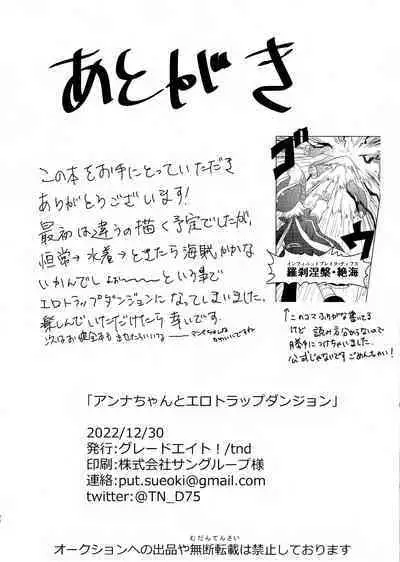 あとがき
この本をお手にとっていただき
ありがとうございます!
最初は違うの描く予定でしたが、
恒常→水着→ときたら海賊、かかな
いかんでしょぉ〜〜〜という事で
エロトラップダンジョンになってしまいました。
楽しんでいただけたら幸いです。
ゴオ
インフィニットブレイク・ディプス
羅刹涅槃・絶海
↑このコマふりがな書いてる
けど 読み方分からないので
勝手につけちゃいました。
公式じゃないです ごめんちゃい!
「アンナちゃんとエロトラップダンジョン」
2022/12/30
発行:グレードエイト!/tnd
印刷:株式会社サングループ様
連絡:put.sueoki@gmail.com
twitter:@TN_D75
むだんてんさい
オークションへの出品や無断転載は禁止しております